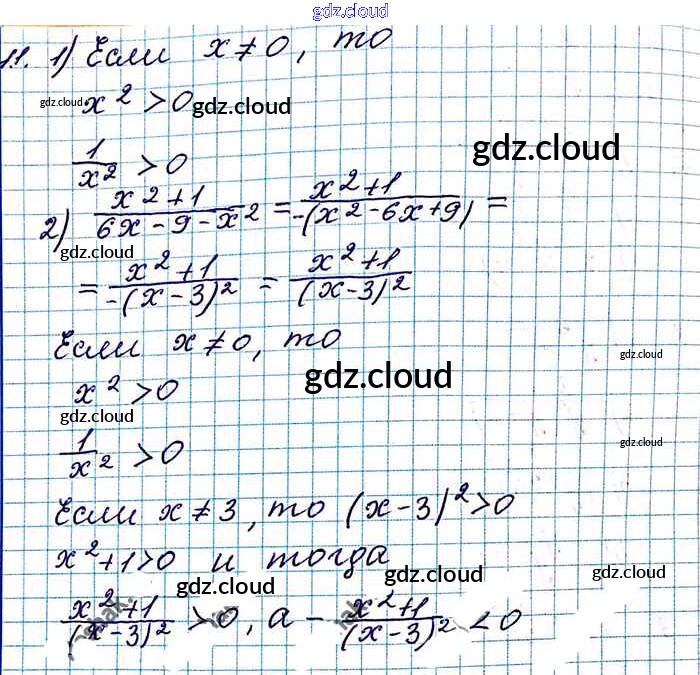 gdz.cloud
11. 1) Если x ≠ 0, то
gdz.cloud x² > 0 gdz.cloud
1/x² > 0 gdz.cloud
2) (x²+1)/(6x-9-x²) = (x²+1)/(-(x²-6x+9)) =
gdz.cloud
= (x²+1)/(-(x-3)²) = (x²+1)/((x-3)²)
Если x ≠ 0, то gdz.cloud
x² > 0 gdz.cloud
gdz.cloud
1/x² > 0 gdz.cloud
Если x ≠ 3, то (x-3)² > 0
x²+1>0 и тогда
gdz.cloud gdz.cloud gdz.cloud
(x²+1)/((x-3)²) > 0, а -(x²+1)/((x-3)²) < 0